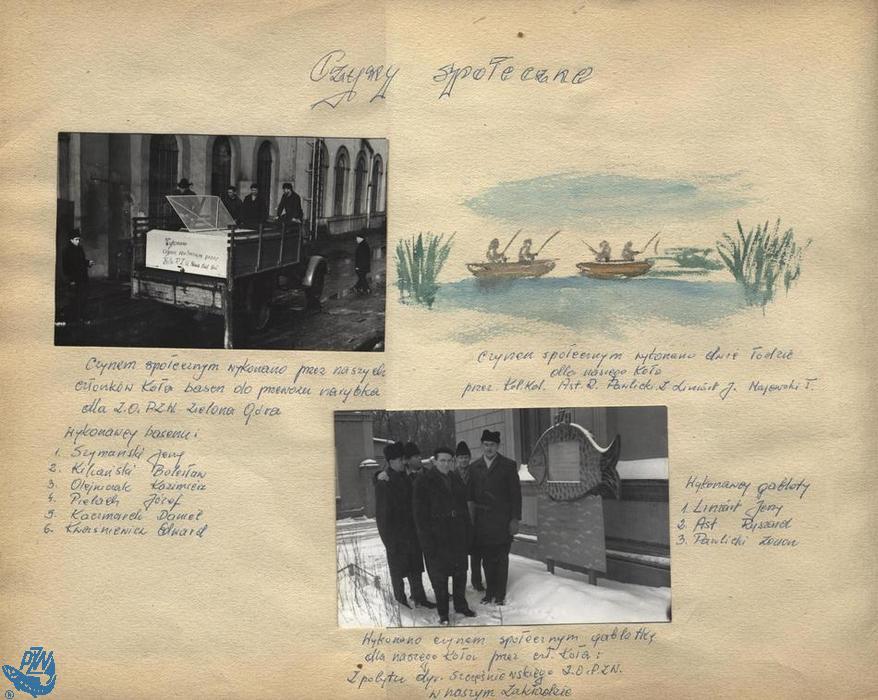 Czyny społeczne
Wykonano
czynem społecznym przez
Koło PZW Nowa Sól
Czynem społecznym wykonano przez naszych
członków Koła basen do przewozu narybku
dla Z.O. PZW. Zielona Góra
Wykonawcy basenu:
1. Szymański Jerzy
2. Kilczański Bolesław
3. Olejniczak Kazimierz
4. Pielach Józef
5. Kaczmarek Daniel
6. Kwaśniewicz Edward
Czynem społecznym wykonano dwie łodzie
dla naszego Koła
przez Kol. Kol. Ast R. Pawlicki Z Liniart J. Majewski T.
Wykonawcy gabloty
1. Liniart Jerzy
2. Ast Ryszard
3. Pawlicki Zenon
Wykonano czynem społecznym gablotkę
dla naszego Koła przez czł. Koła:
Z pobytu dyr. Szcześniewskiego Z.O. PZW.
w naszym Zakładzie
PZW